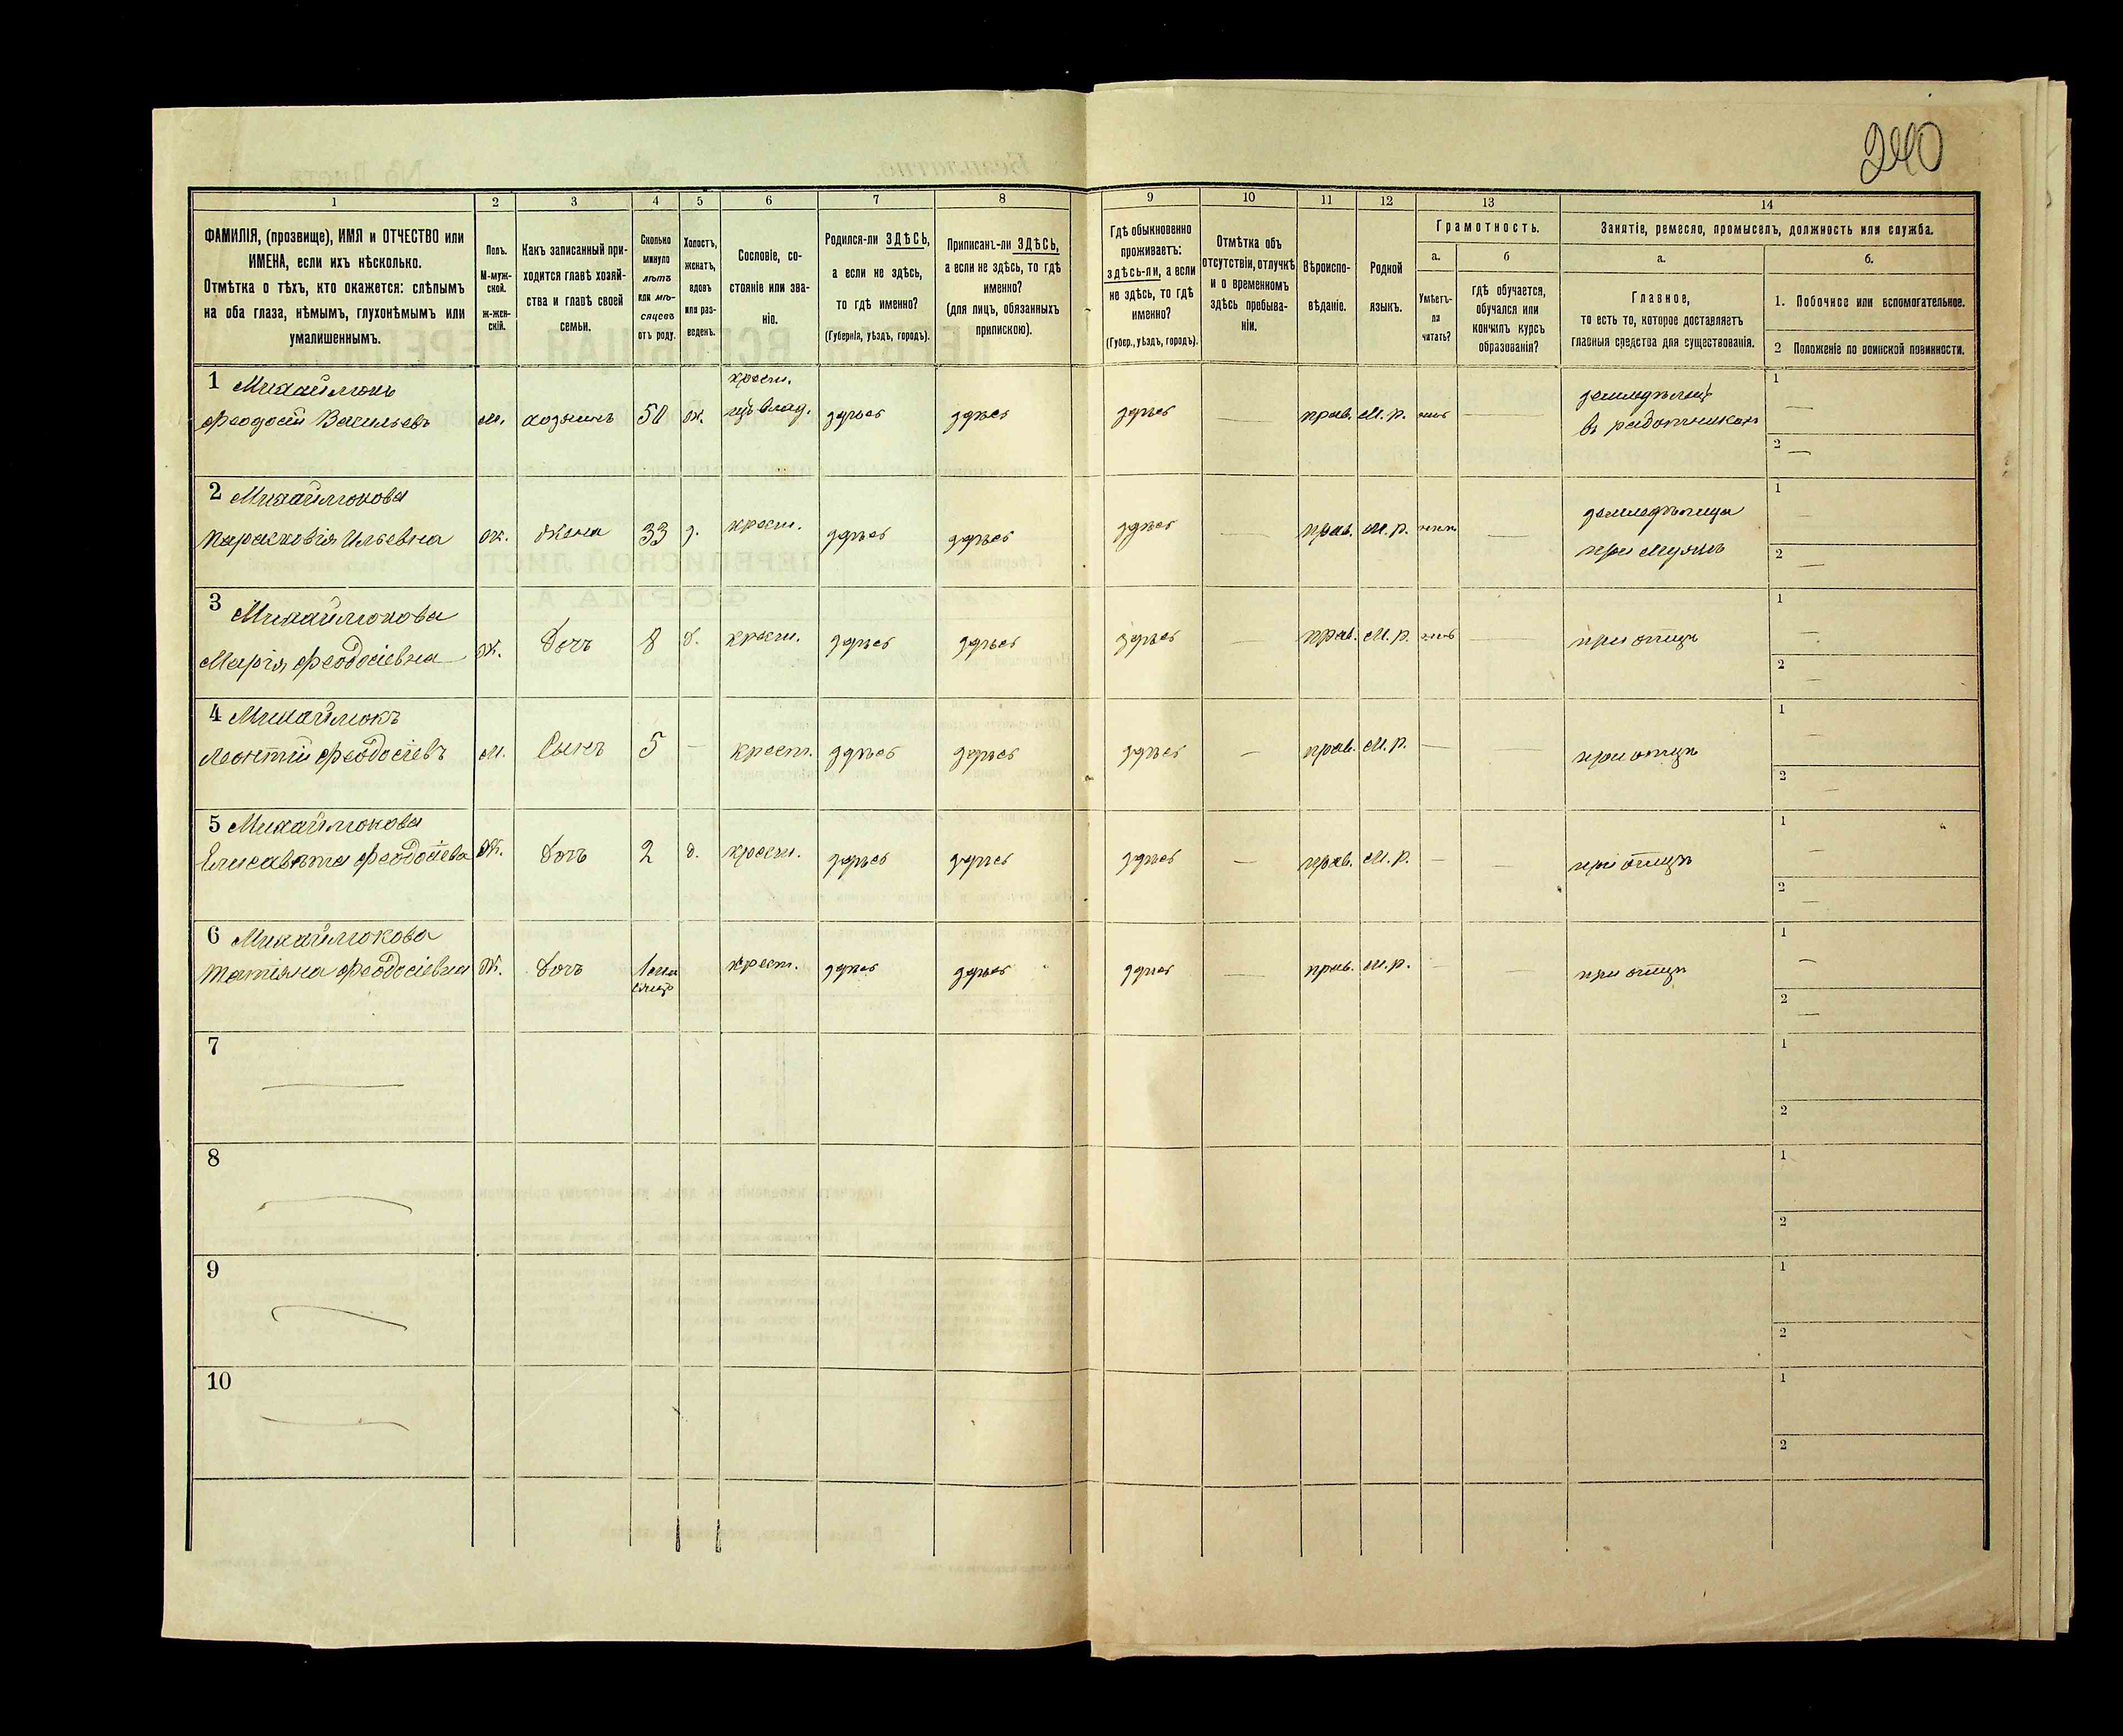 240
1
2
3
4
5
6
7
8
9
10
11
12
13
14
ФАМИЛІЯ, (прозвище), ИМЯ и ОТЧЕСТВО или
ИМЕНА, если ихъ нѣсколько.
Отмѣтка о тѣхъ, кто окажется: слѣпымъ
на оба глаза, нѣмымъ, глухонѣмымъ или
умалишеннымъ.
Полъ.
М-муж-
ской.
ж-жен-
скій.
Какъ записанный при-
ходится главѣ хозяй-
ства и главѣ своей
семьи.
Сколько
минуло
лѣтъ
или мѣ-
сяцевъ
отъ роду.
Холостъ,
женатъ,
вдовъ
или раз-
веденъ.
Сословіе, со-
стояніе или зва-
ніе.
Родился-ли ЗДѢСЬ,
а если не здѣсь,
то гдѣ именно?
(Губернія, уѣздъ, городъ).
Приписанъ-ли ЗДѢСЬ,
а если не здѣсь, то гдѣ
именно?
(для лицъ, обязанныхъ
припискою).
Гдѣ обыкновенно
проживаетъ:
здѣсь-ли, а если
не здѣсь, то гдѣ
именно?
(Губер., уѣздъ, городъ).
Отмѣтка объ
отсутствіи, отлучкѣ
и о временномъ
здѣсь пребыва-
ніи.
Вѣроиспо-
вѣданіе.
Родной
языкъ.
Грамотность.
а.
б
Умѣетъ-
ли
читать?
гдѣ обучается,
обучался или
кончилъ курсъ
образованія?
Занятіе, ремесло, промыселъ, должность или служба.
а.
б.
Главное,
то есть то, которое доставляетъ
главныя средства для существованія.
1. Побочное или вспомогательное.
2 Положеніе по воинской повинности.
1 Михайлюкъ
Феодосій Васильевъ м. хозяинъ 50 ж. крест. здѣсь здѣсь здѣсь — прав. М. р. — земледѣлецъ
1 —
2 —
2 Михайлюкова
Параскевія Ильевна ж. жена 33 з. крест. здѣсь здѣсь здѣсь — прав. М. р. — земледѣлица
при мужѣ
1 —
2 —
3 Михайлюкова
Марія Феодосіевна ж. дочь 8 д. крест. здѣсь здѣсь здѣсь — прав. М. р. — при отцѣ
1 —
2 —
4 Михайлюкъ
Леонтій Феодосіевъ м. Сынъ 5 — крест. здѣсь здѣсь здѣсь — прав. М. р. — — при отцѣ
1 —
2 —
5 Михайлюкова
Елисавѣта Феодосіева ж. дочь 2 д. крест. здѣсь здѣсь здѣсь — прав. М. р. — — при отцѣ
1 —
2 —
6 Михайлюкова
Татіяна Феодосіевна ж. дочь 1 крест. здѣсь здѣсь здѣсь — прав. м. р. — — при отцѣ
1 —
2 —
7 —
1
2
8 —
1
2
9 —
1
2
10 —
1
2